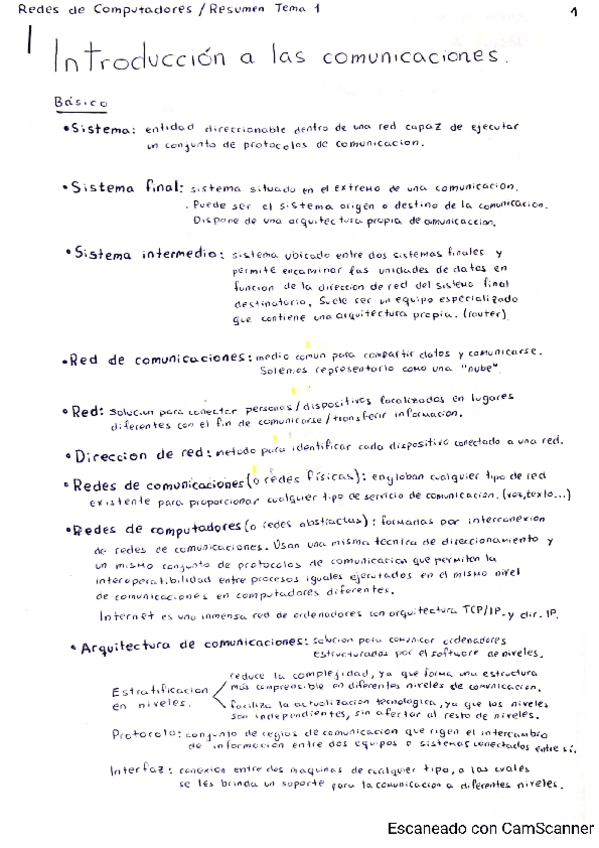 Redes de Computadores / Resumen Tema 1
1
Introducción a las comunicaciones.
Básico
• Sistema: entidad direccionable dentro de una red capaz de ejecutar
un conjunto de protocolos de comunicacion.
• Sistema final: sistema situado en el extremo de una comunicacion.
. Puede ser el sistema origen o destino de la comunicacion.
Dispone de una arquitectura propia de comunicaccion.
• Sistema intermedio: sistema ubicado entre dos sistemas finales y
permite encaminar las unidades de datos en
funcion de la direccion de red del sistema final
destinatario. Suele ser un equipo especializado
que contiene una arquitectura propia. (router)
• Red de comunicaciones: medio comun para compartir datos y comunicarse.
Solemos representarlo como una "nube".
• Red: solucion para conectar personas/dispositivos localizadas en lugares
diferentes con el fin de comunicarse/transferir informacion.
• Direccion de red: metodo para identificar cada dispositivo conectado a una red.
• Redes de comunicaciones (o redes físicas): engloban cualquier tipo de red
existente para proporcionar cualquier tipo de servicio de comunicacion. (voz, texto...)
• Redes de computadores (o redes abstractas): formadas por interconexion
de redes de comunicaciones. Usan una misma tecnica de direccionamiento y
un mismo conjunto de protocolos de comunicacion que permiten la
interoperatibilidad entre procesos iguales ejecutados en el mismo nivel
de comunicaciones en computadores diferentes.
Internet es una inmensa red de ordenadores con arquitectura TCP/IP. y dir. IP.
• Arquitectura de comunicaciones: solucion para comunicar ordenadores
estructurados por el software de niveles.
reduce la complejidad, ya que forma una estructura
Estratificacion más comprensible en diferentes niveles de comunicacion.
en niveles. faciliza la actualizacion tecnologica, ya que los niveles
son independientes, sin afectar al resto de niveles.
Protocolo: conjunto de reglas de comunicacion que rigen el intercambio
de informacion entre dos equipos o sistemas conectados entre sí.
Interfaz: conexion entre dos maquinas de cualquier tipo, a las cuales
se les brinda un soporte para la comunicacion a diferentes niveles.
Escaneado con CamScanner